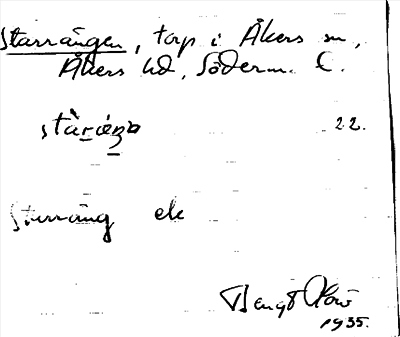 Starrängen, torp i Åkers sn,
Åkers hd, Söderm. l.
22.
Starräng ek
Bengt
1935.